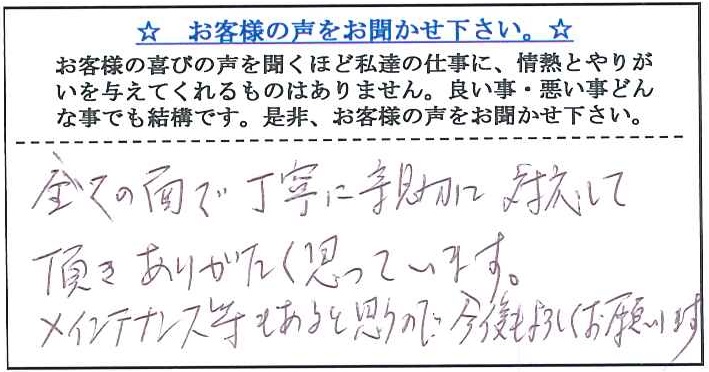 ☆ お客様の声をお聞かせ下さい。☆
お客様の喜びの声を聞くほど私達の仕事に、情熱とやりが
いを与えてくれるものはありません。良い事・悪い事どん
な事でも結構です。是非、お客様の声をお聞かせ下さい。
全ての面で丁寧に親切に対応して
頂きありがたく思っています。
メインテナンス等もあると思うので今後もよろしくお願いします